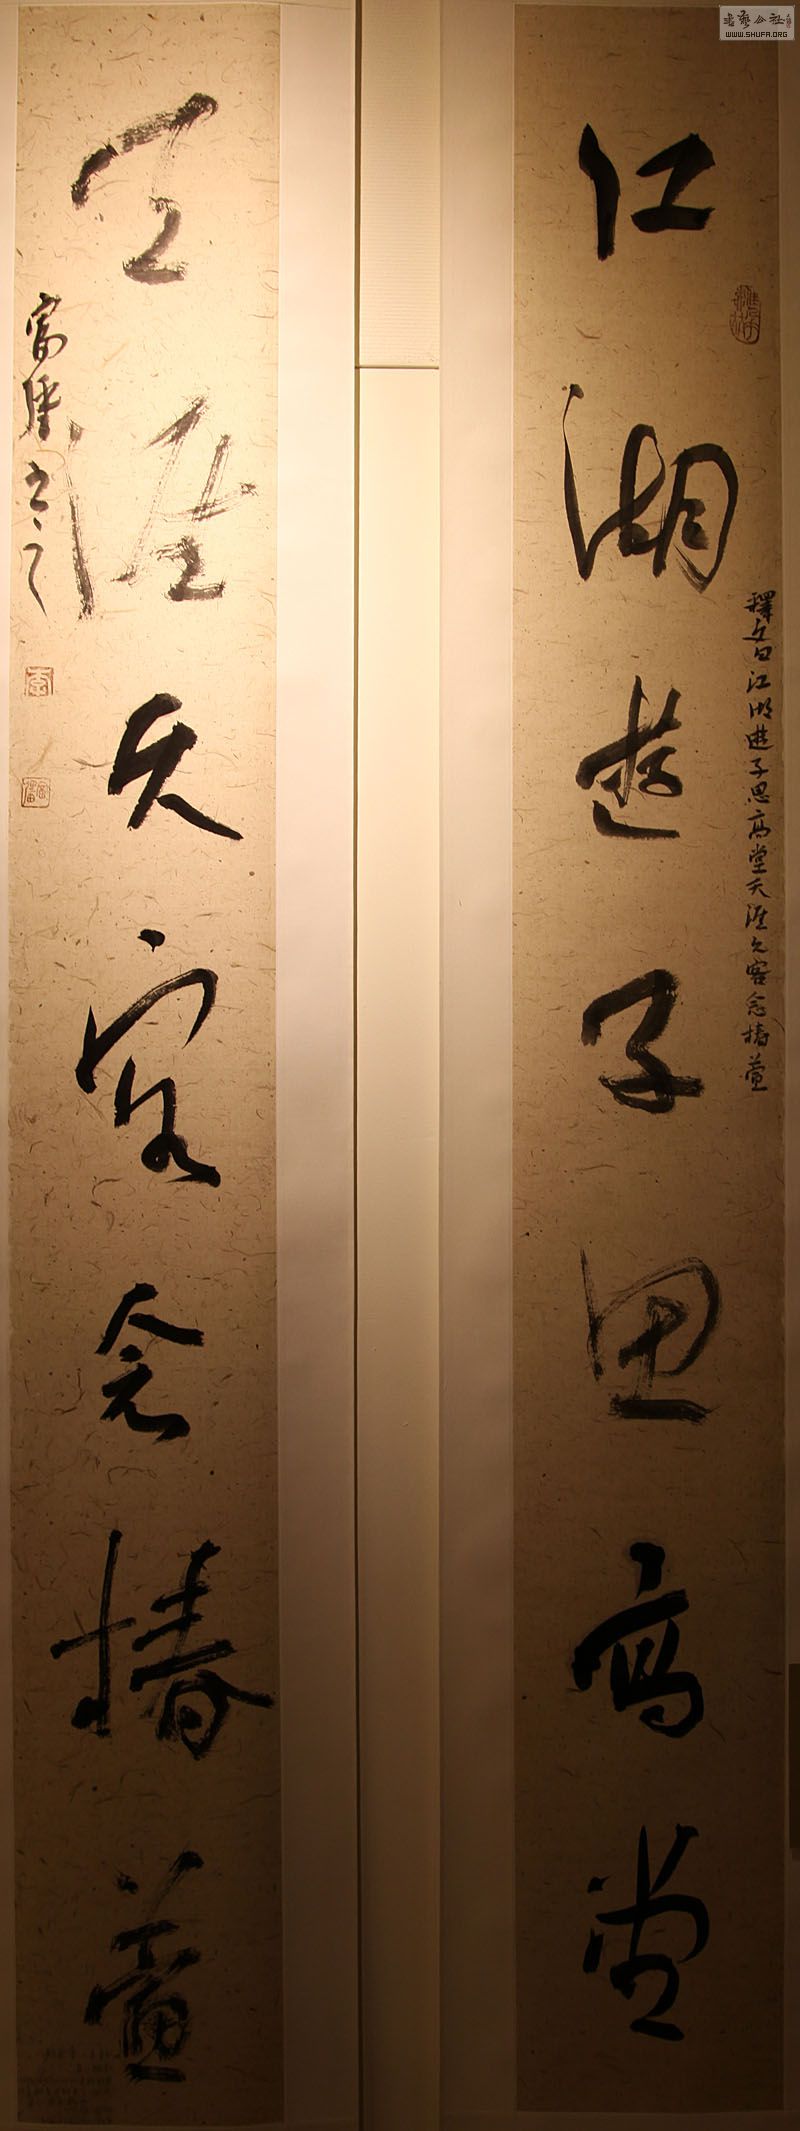 江湖遊子思高堂
釋文曰江湖遊子思高堂天涯久客念椿萱
天涯久客念椿萱
書之
書藝公社
WWW.SHUFA.ORG